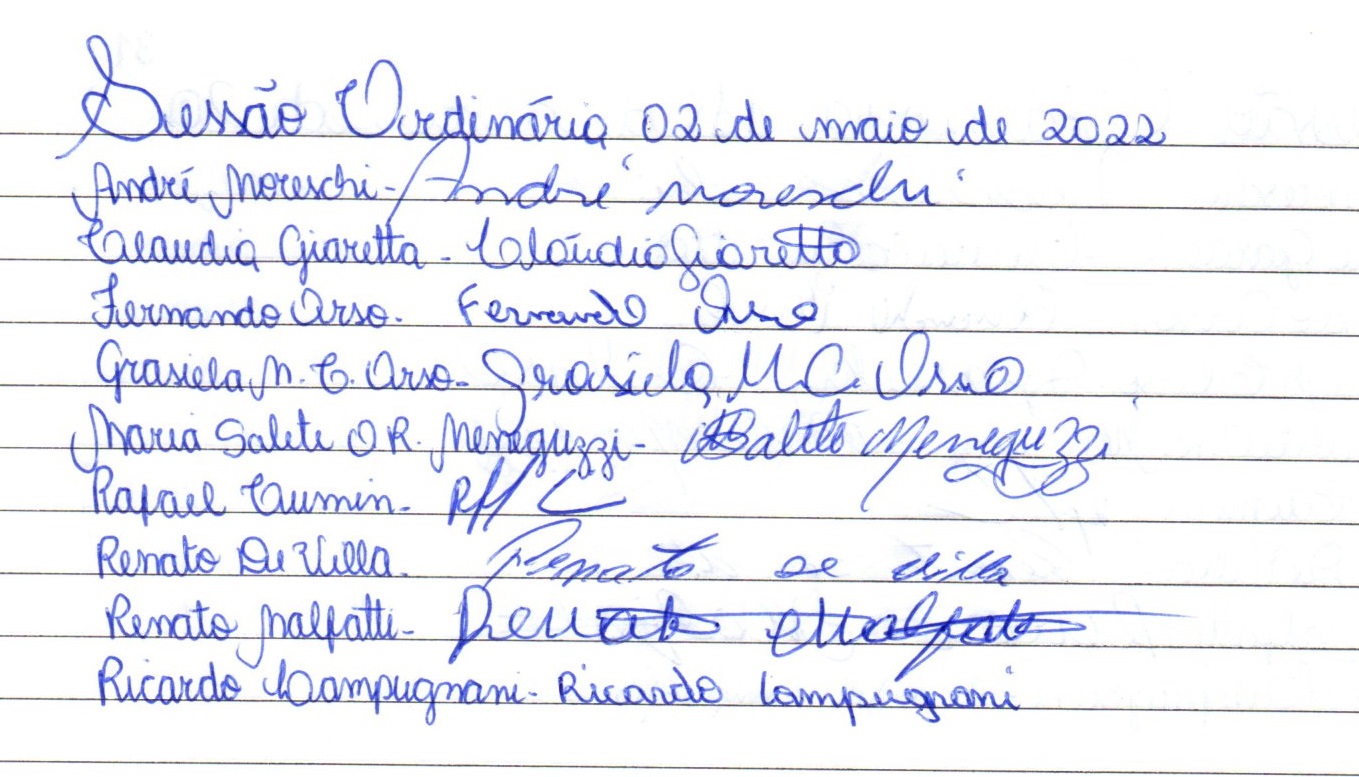 Sessão Ordinária 02 de maio de 2022
André Moreschi - André Moreschi
Claudia Giaretta - Claúdia Giaretta
Fernando Orso. Fernando Orso
Grasiela M. C. Orso - Grasiela M. C. Orso
Maria Salete O R. Meneguzzi - Salete Meneguzzi
Rafael Cumin -
Renato De Villa. Renato De Villa
Renato Malfatti - Renato Malfatti
Ricardo Campugnani - Ricardo Campugnani